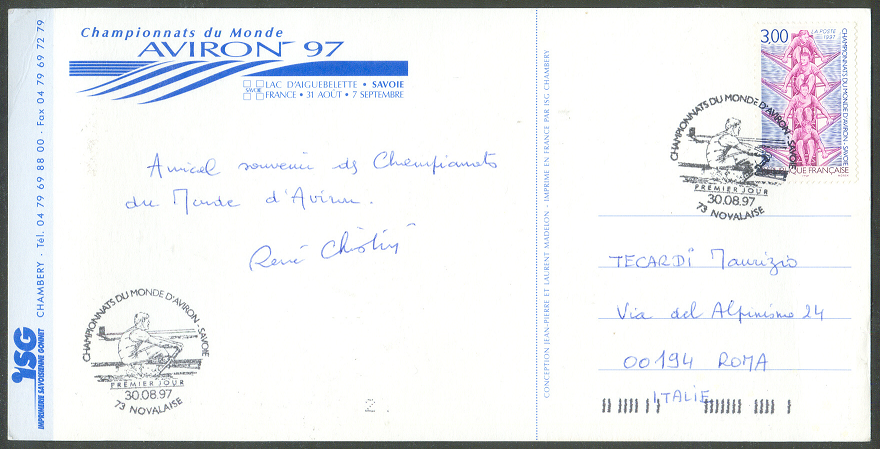 Championnats du Monde
AVIRON 97
LAC D'AIGUEBELETTE • SAVOIE
SAVOIE
FRANCE • 31 AOUT • 7 SEPTEMBRE
Amical souvenir ds Championats
du Monde d'Aviron.
René
CHAMPIONNATS DU MONDE D'AVIRON - SAVOIE
PREMIER JOUR
30.08.97
73 NOVALAISE
2
YSG
IMPRIMERIE SAVOISIENNE GONNET
CHAMBERY - Tél. 04 79 69 88 00 - Fax 04 79 69 72 79
CONCEPTION JEAN-PIERRE ET LAURENT MADELON - IMPRIMÉ EN FRANCE PAR ISG CHAMBERY
3,00
LA POSTE
1997
CHAMPIONNATS DU MONDE D'AVIRON - SAVOIE
QUE FRANÇAISE
CHAMPIONNATS DU MONDE D'AVIRON - SAVOIE
PREMIER JOUR
30.08.97
73 NOVALAISE
TECARDÏ Maurizio
Via del Alpinismo 24
00194 ROMA
ITALIE